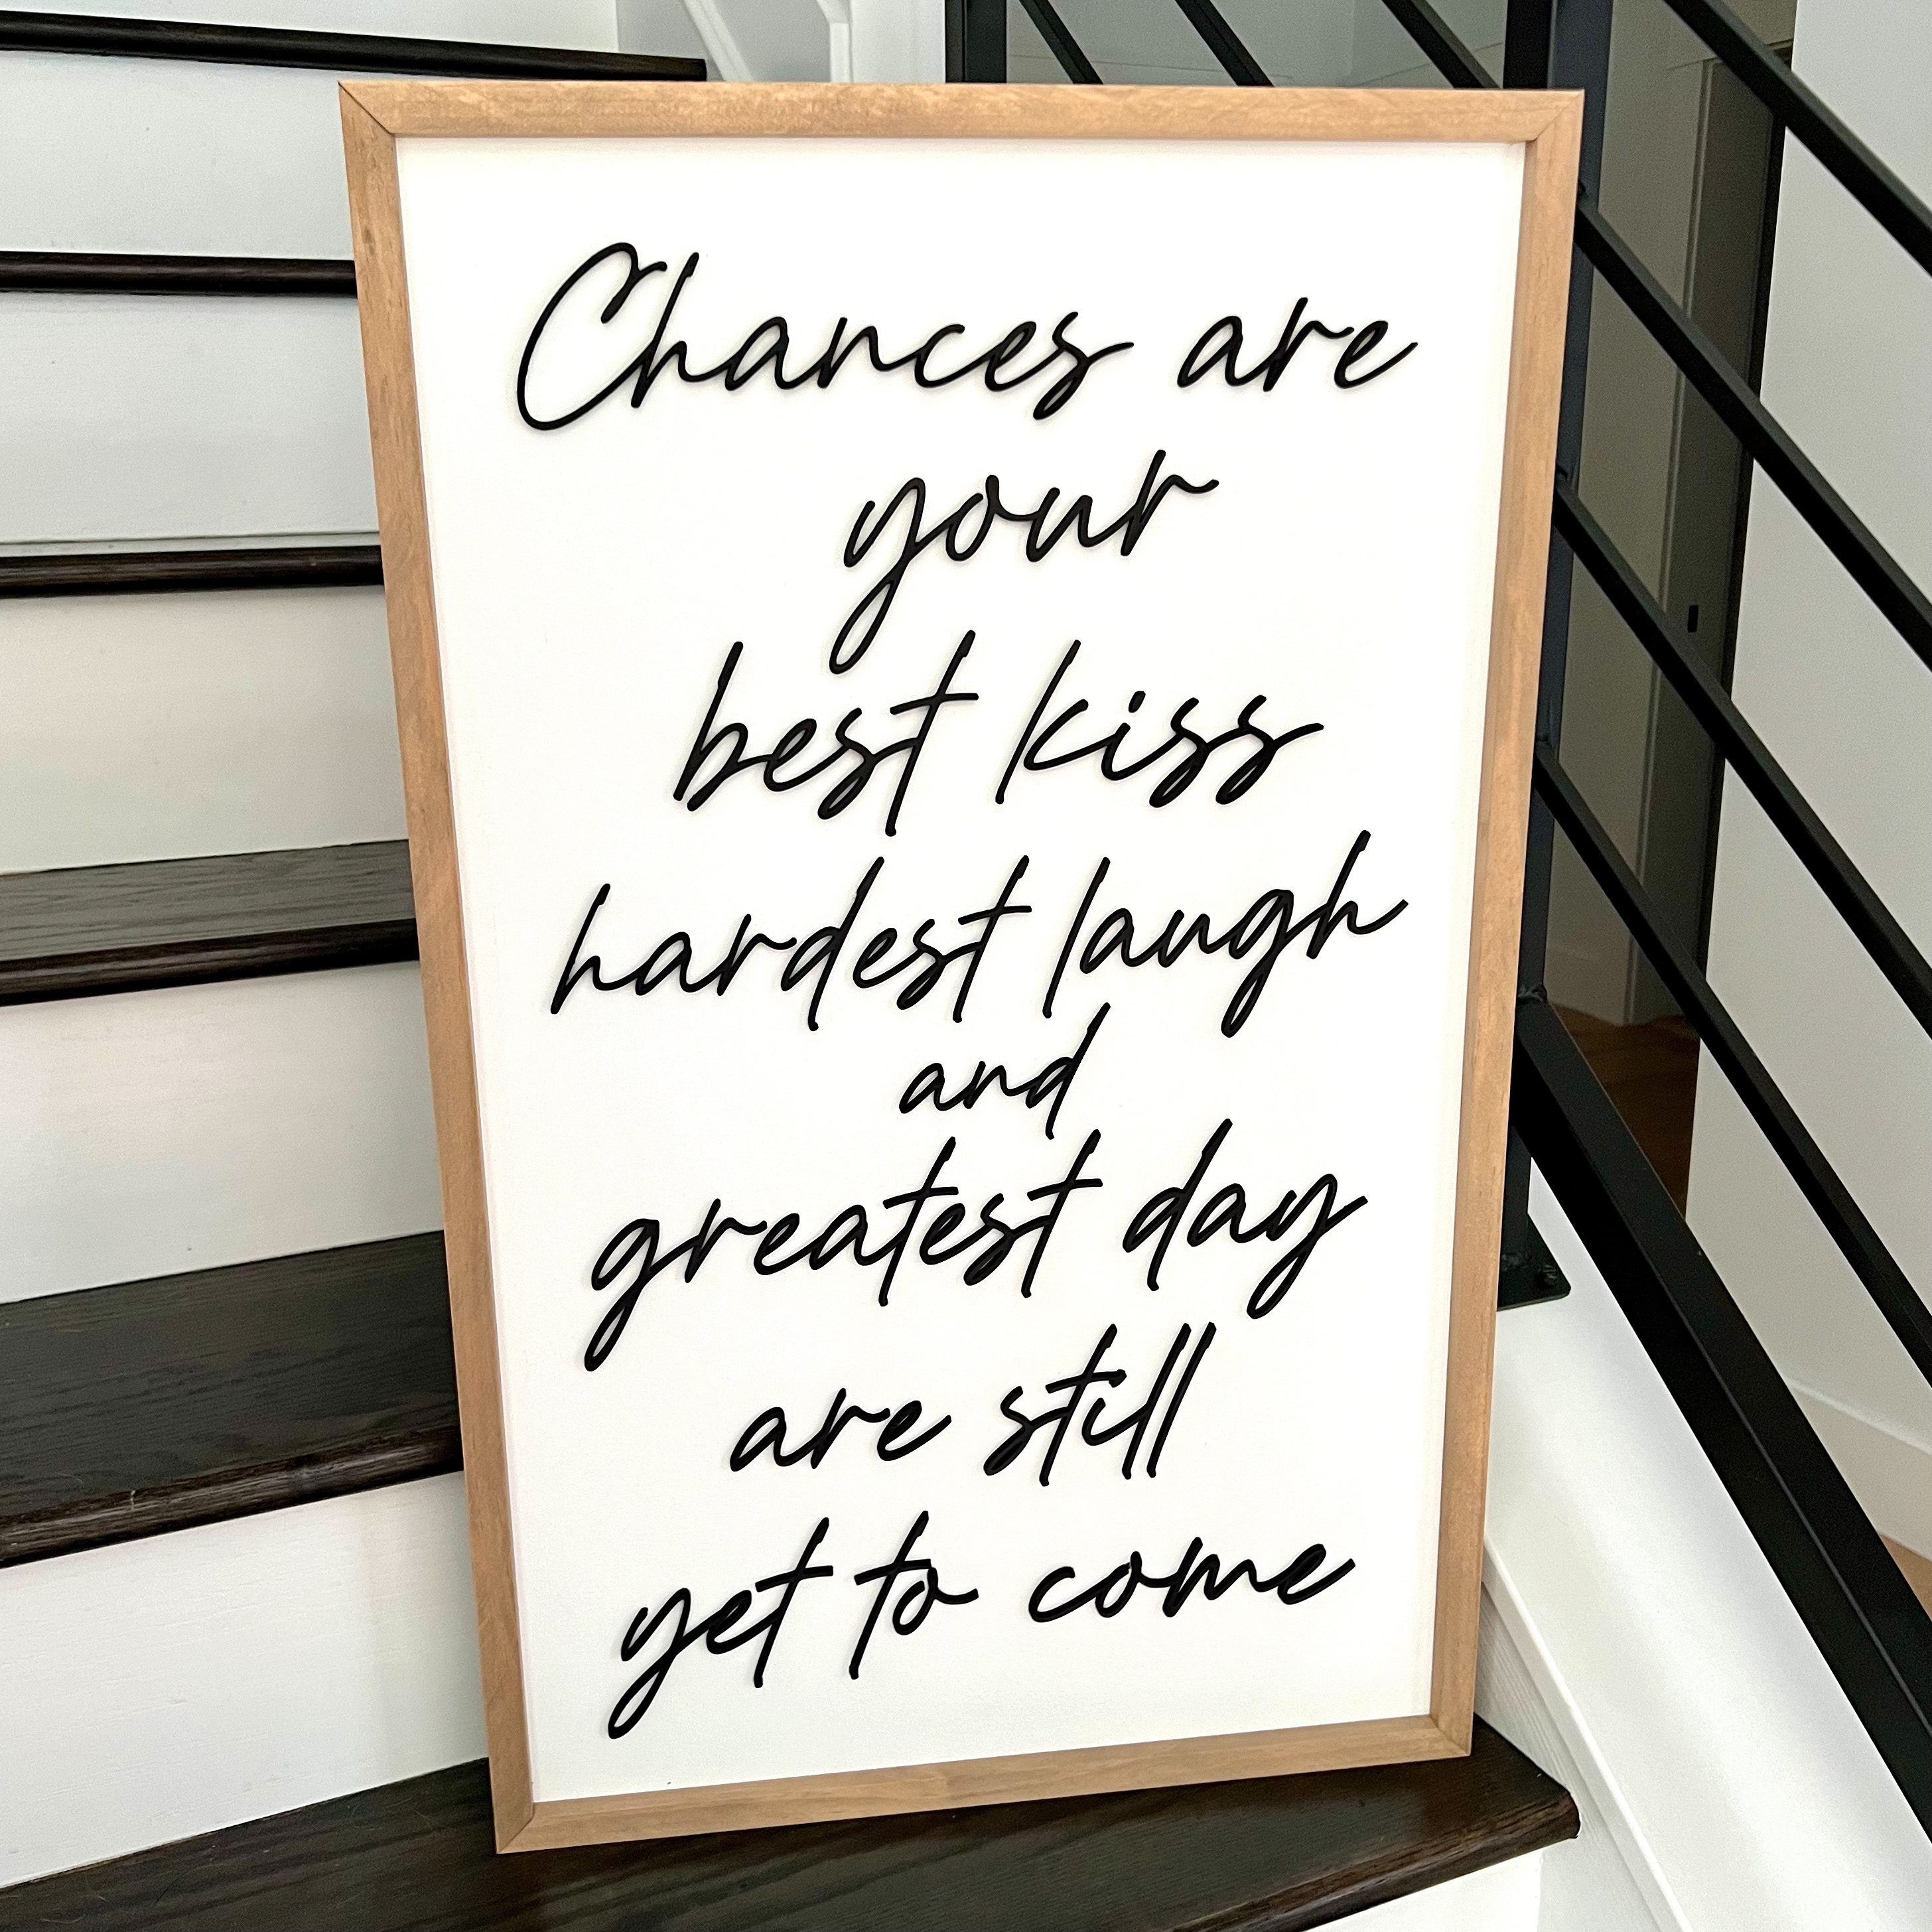 Chances are
your
best kiss
hardest laugh
and
greatest day
are still
yet to come